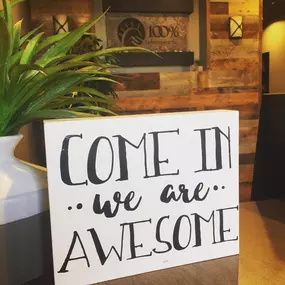 100%
COME IN
··we are··
AWESOME